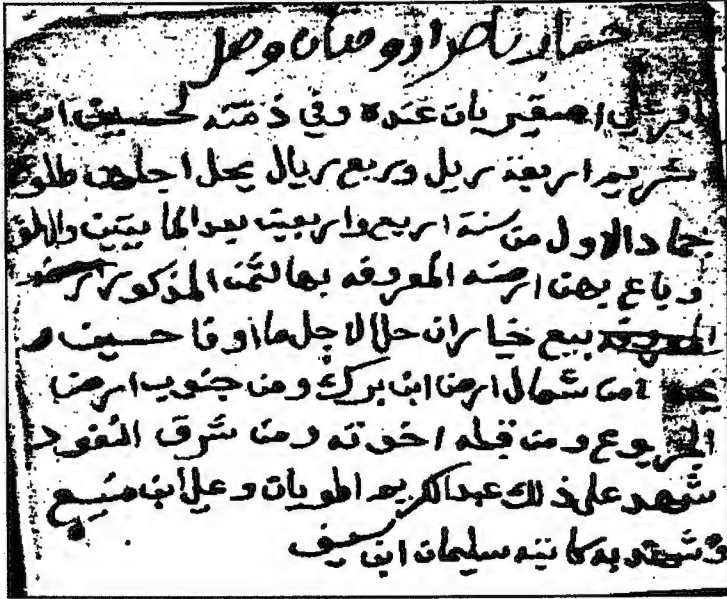 شهاد ناصر او رمضان وصل
اقر علي اصقير بان عنده وفي ذمته لحسين ابن
شريم اربعة ريل وربع ريال يحل اجلهن طلوع
جماد الاول من سنة اربع واربعين بعد المايتين والالف
وباع بهن ارضه المعروفه بهالثمن المذكور
المعروفه بيع خيار ان حل الاجل ما اوفا حسين
من شمال ارض ابن برك ومن جنوب ارض
الجربوع ومن قبله اخوته ومن شرق النفود
شهد على ذلك عبدالكريم اطويان وعلي ابن منيع
وشهد به كاتبه سليمان ابن سيف